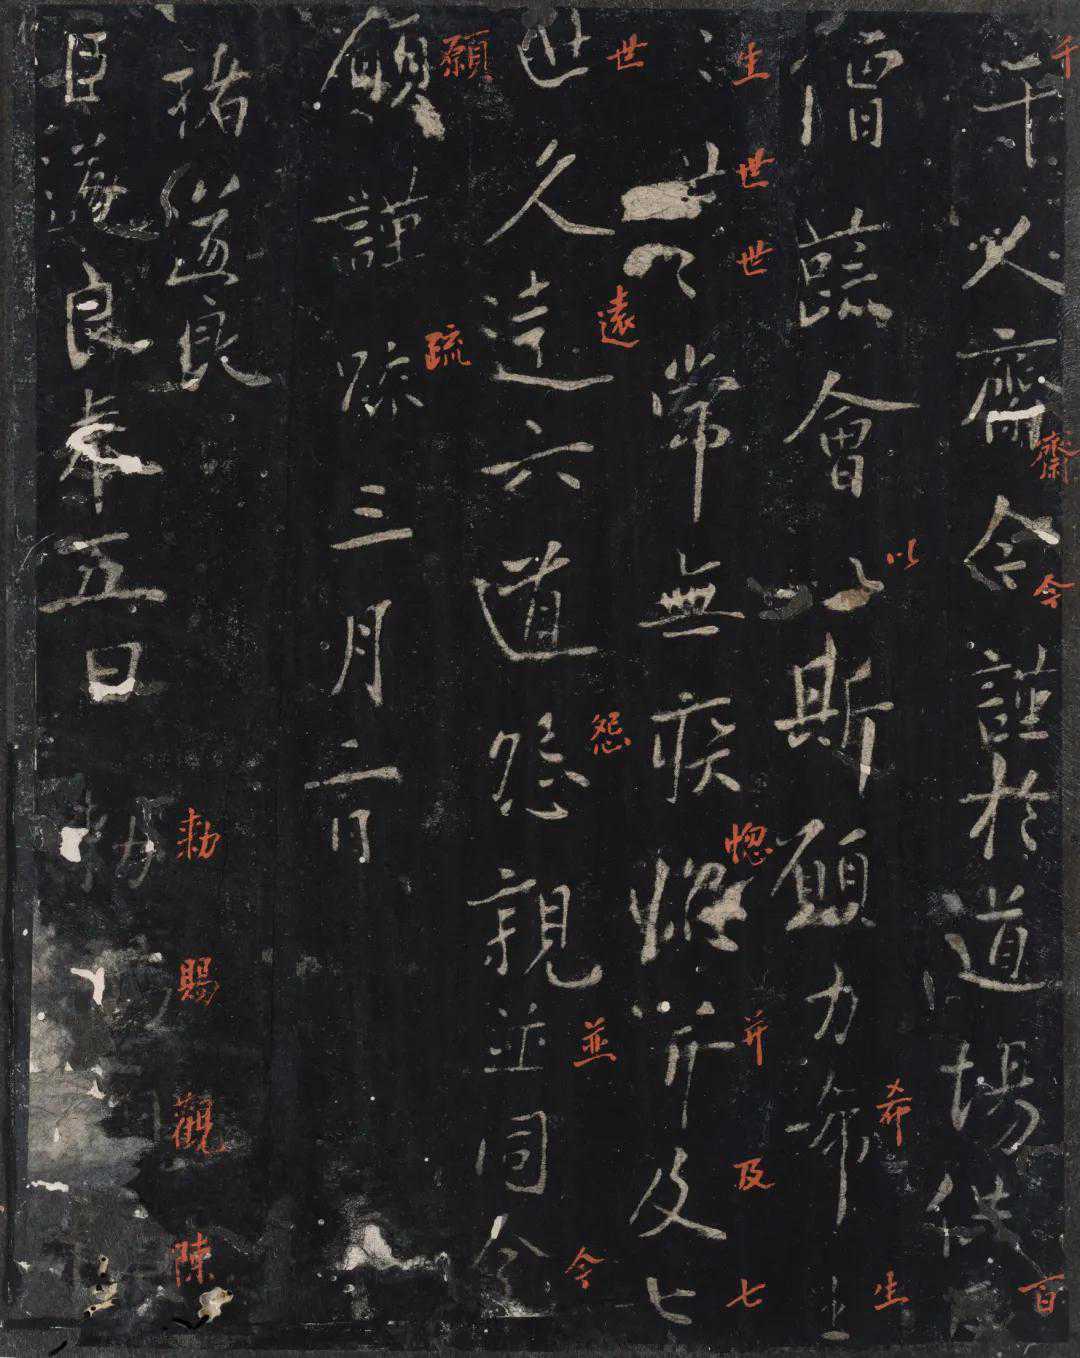 千 齋 今 百
千人齋今謹於道場供
以 希 生
僧會以斯願力希生
生 世 世 惱 并 及 七
世常無疾惱并及七
世 遠 怨 並 今
世久遠六道怨親並同今
願 疏
願謹疏三月二日
褚遂良
勅 賜 觀 陳
臣遂良奉五日勅